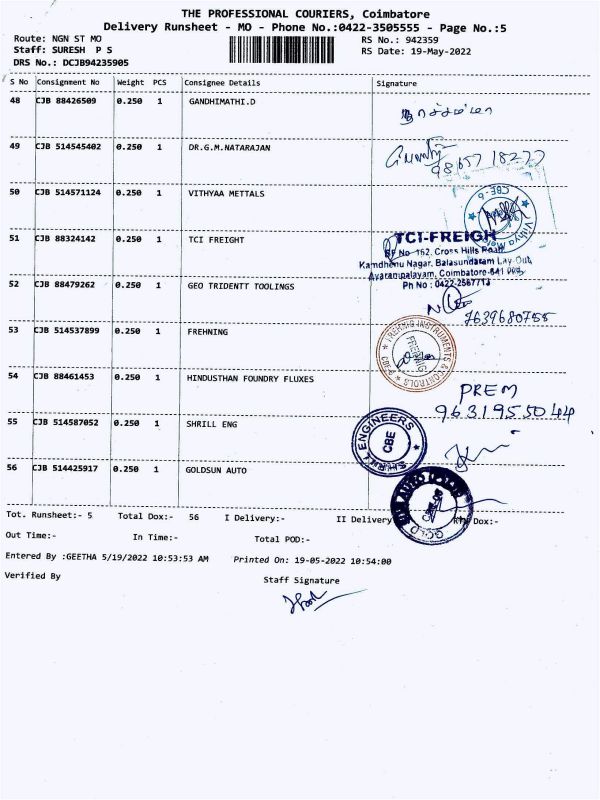 THE PROFESSIONAL COURIERS, Coimbatore
Delivery Runsheet - MO - Phone No.:0422-3505555 - Page No.:5
Route: NGN ST MO
RS No.: 942359
Staff: SURESH P S
RS Date: 19-May-2022
DRS No.: DCJB94235905
S No Consignment No Weight PCS Consignee Details Signature
48 CJB 88426509 0.250 1 GANDHIMATHI.D
49 CJB 514545402 0.250 1 DR.G.M.NATARAJAN
98657 18277
50 CJB 514571124 0.250 1 VITHYAA METTALS
CBE-6
51 CJB 88324142 0.250 1 TCI FREIGHT
TCI-FREIGH
SF No 162, Cross Hills Road
Kamdhenu Nagar, Balasundaram Lay-Out
Avarampalayam, Coimbatore-641 006
Ph No : 0422-2567713
52 CJB 88479262 0.250 1 GEO TRIDENTT TOOLINGS
7639680755
53 CJB 514537899 0.250 1 FREHNING
FREHNIG INSTRUMENTS & CONTROLS
FREHNIG
CBE-6
54 CJB 88461453 0.250 1 HINDUSTHAN FOUNDRY FLUXES
PREM
9631955044
55 CJB 514587052 0.250 1 SHRILL ENG
SHRILL ENGINEERS
CBE
56 CJB 514425917 0.250 1 GOLDSUN AUTO
Tot. Runsheet:- 5 Total Dox:- 56 I Delivery:- II Delivery Dox:-
Out Time:- In Time:- Total POD:-
Entered By :GEETHA 5/19/2022 10:53:53 AM Printed On: 19-05-2022 10:54:00
Verified By Staff Signature